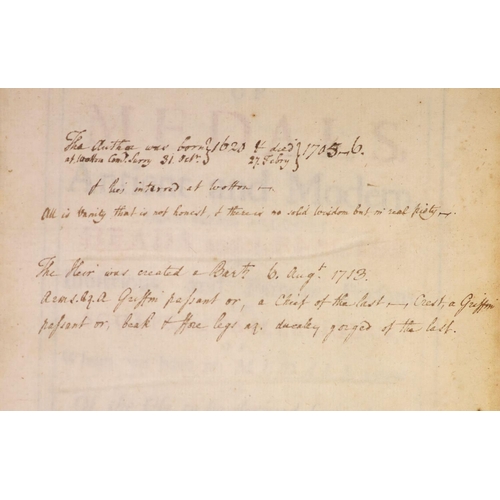 The Author was born } 1620 & died } 1705-6.
at Wotton Com. Surry 31. Octr. } 27. Febry }
& lies interred at Wotton
All is Vanity that is not honest, & there is no solid Wisdom but in real Piety
The Heir was created a Bart. 6. Augt. 1713.
Arms. Az. A Griffin passant or, a Chief of the last Crest, a Griffin
passant or, beak & fore legs az. ducaley gorged of the last.
MEDALS